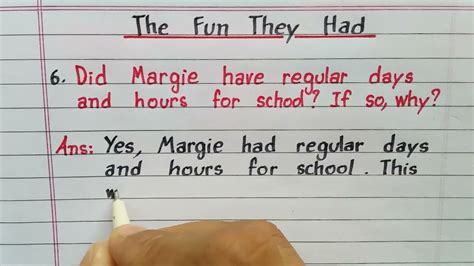 The Fun They Had
6. Did Margie have regular days
and hours for school? If so, why?
Ans: Yes, Margie had regular days
and hours for school. This